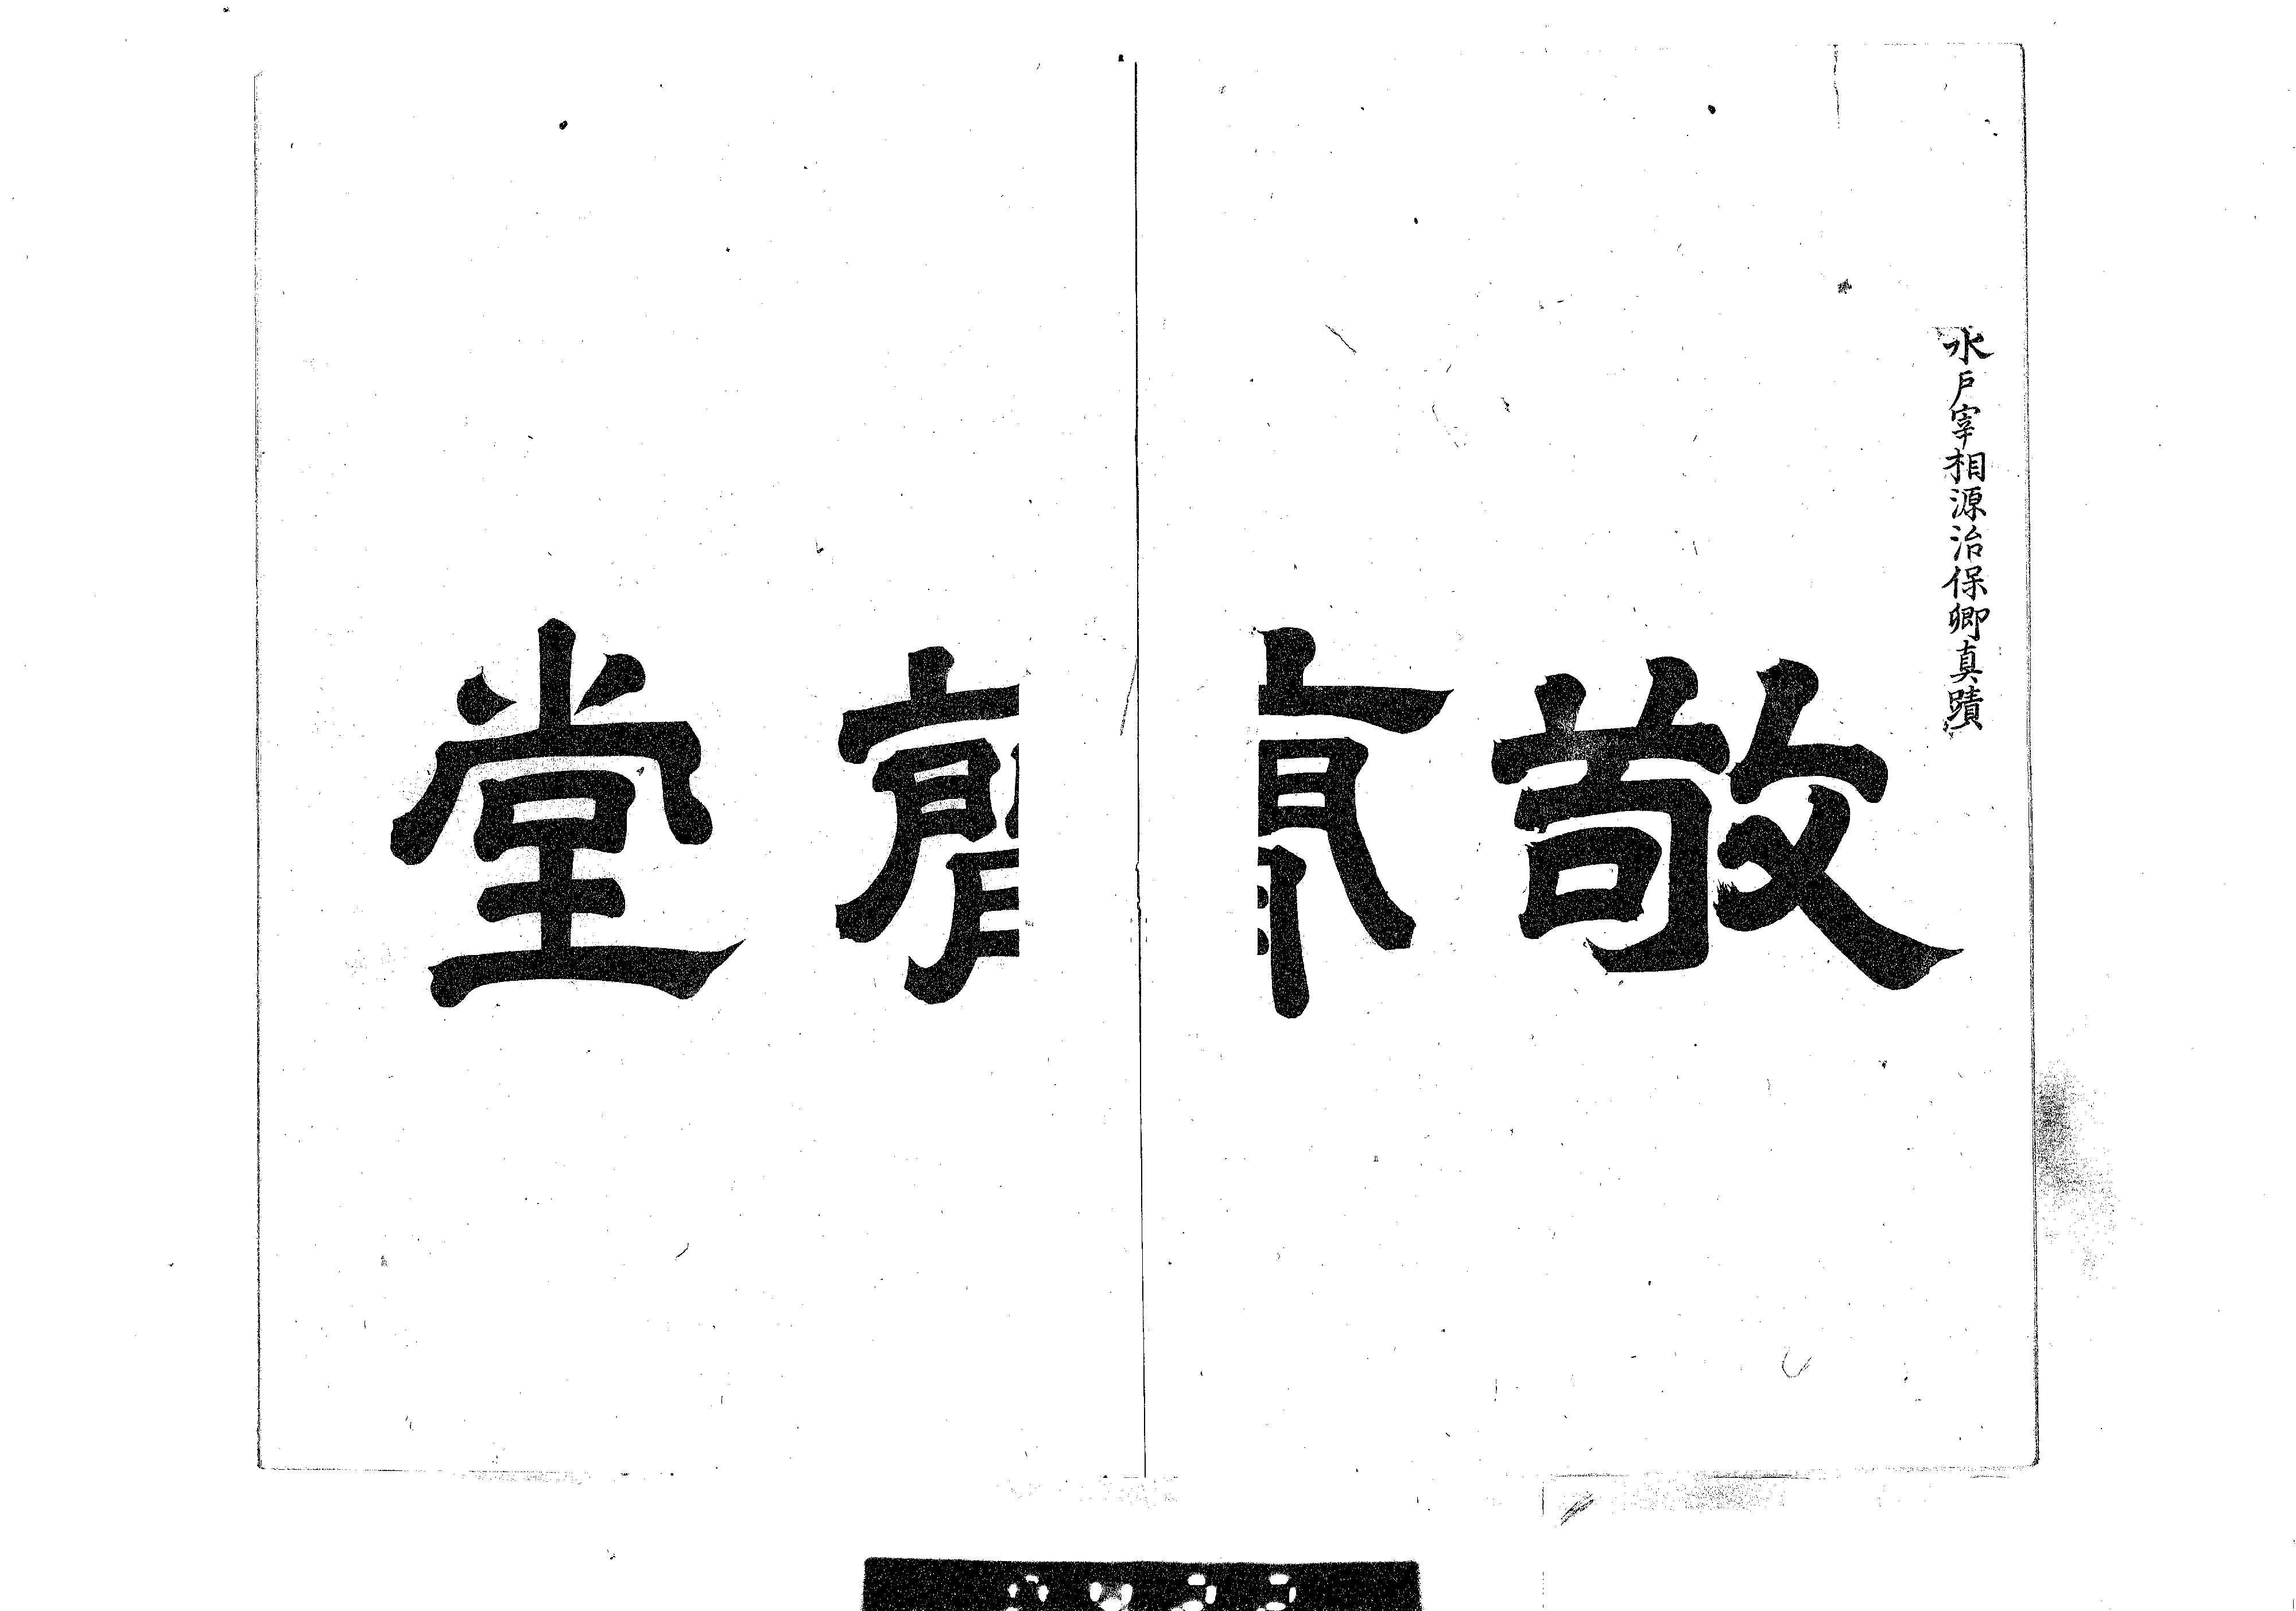 水戸宰相源治保卿真蹟
敬齊堂